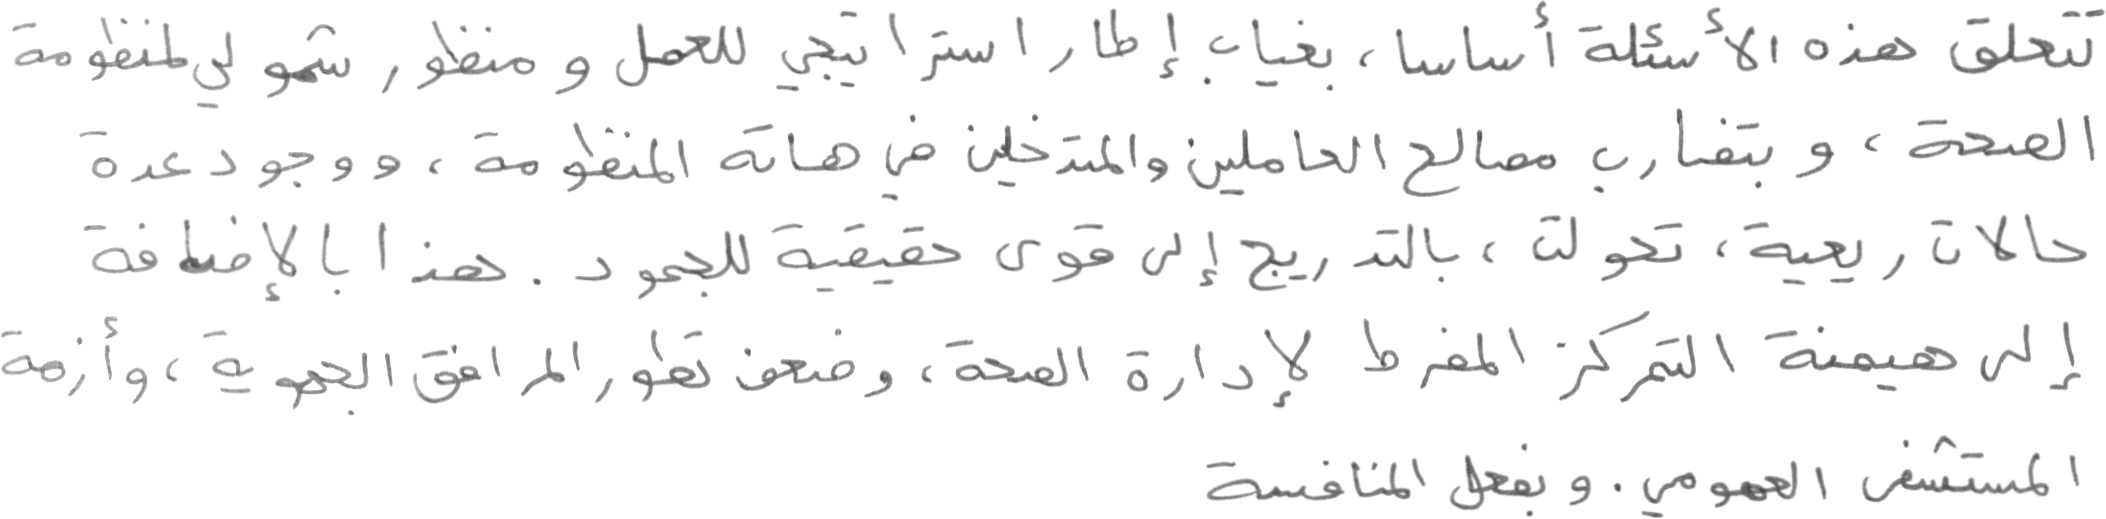 تتعلق هذه الأسئلة أساسا، بغياب إطار استراتيجي للعمل و منظور شمولي لمنظومة
الصحة، و بتضارب مصالح العاملين والمتدخلين في هاته المنظومة، ووجود عدة
حالات ريعية، تحولت، بالتدريج إلى قوى حقيقية للجمود. هذا بالإضافة
إلى هيمنة التمركز المفرط لإدارة الصحة، وضعف تطور المرافق الجهوية، وأزمة
المستشفى العمومي. و بفعل المنافسة